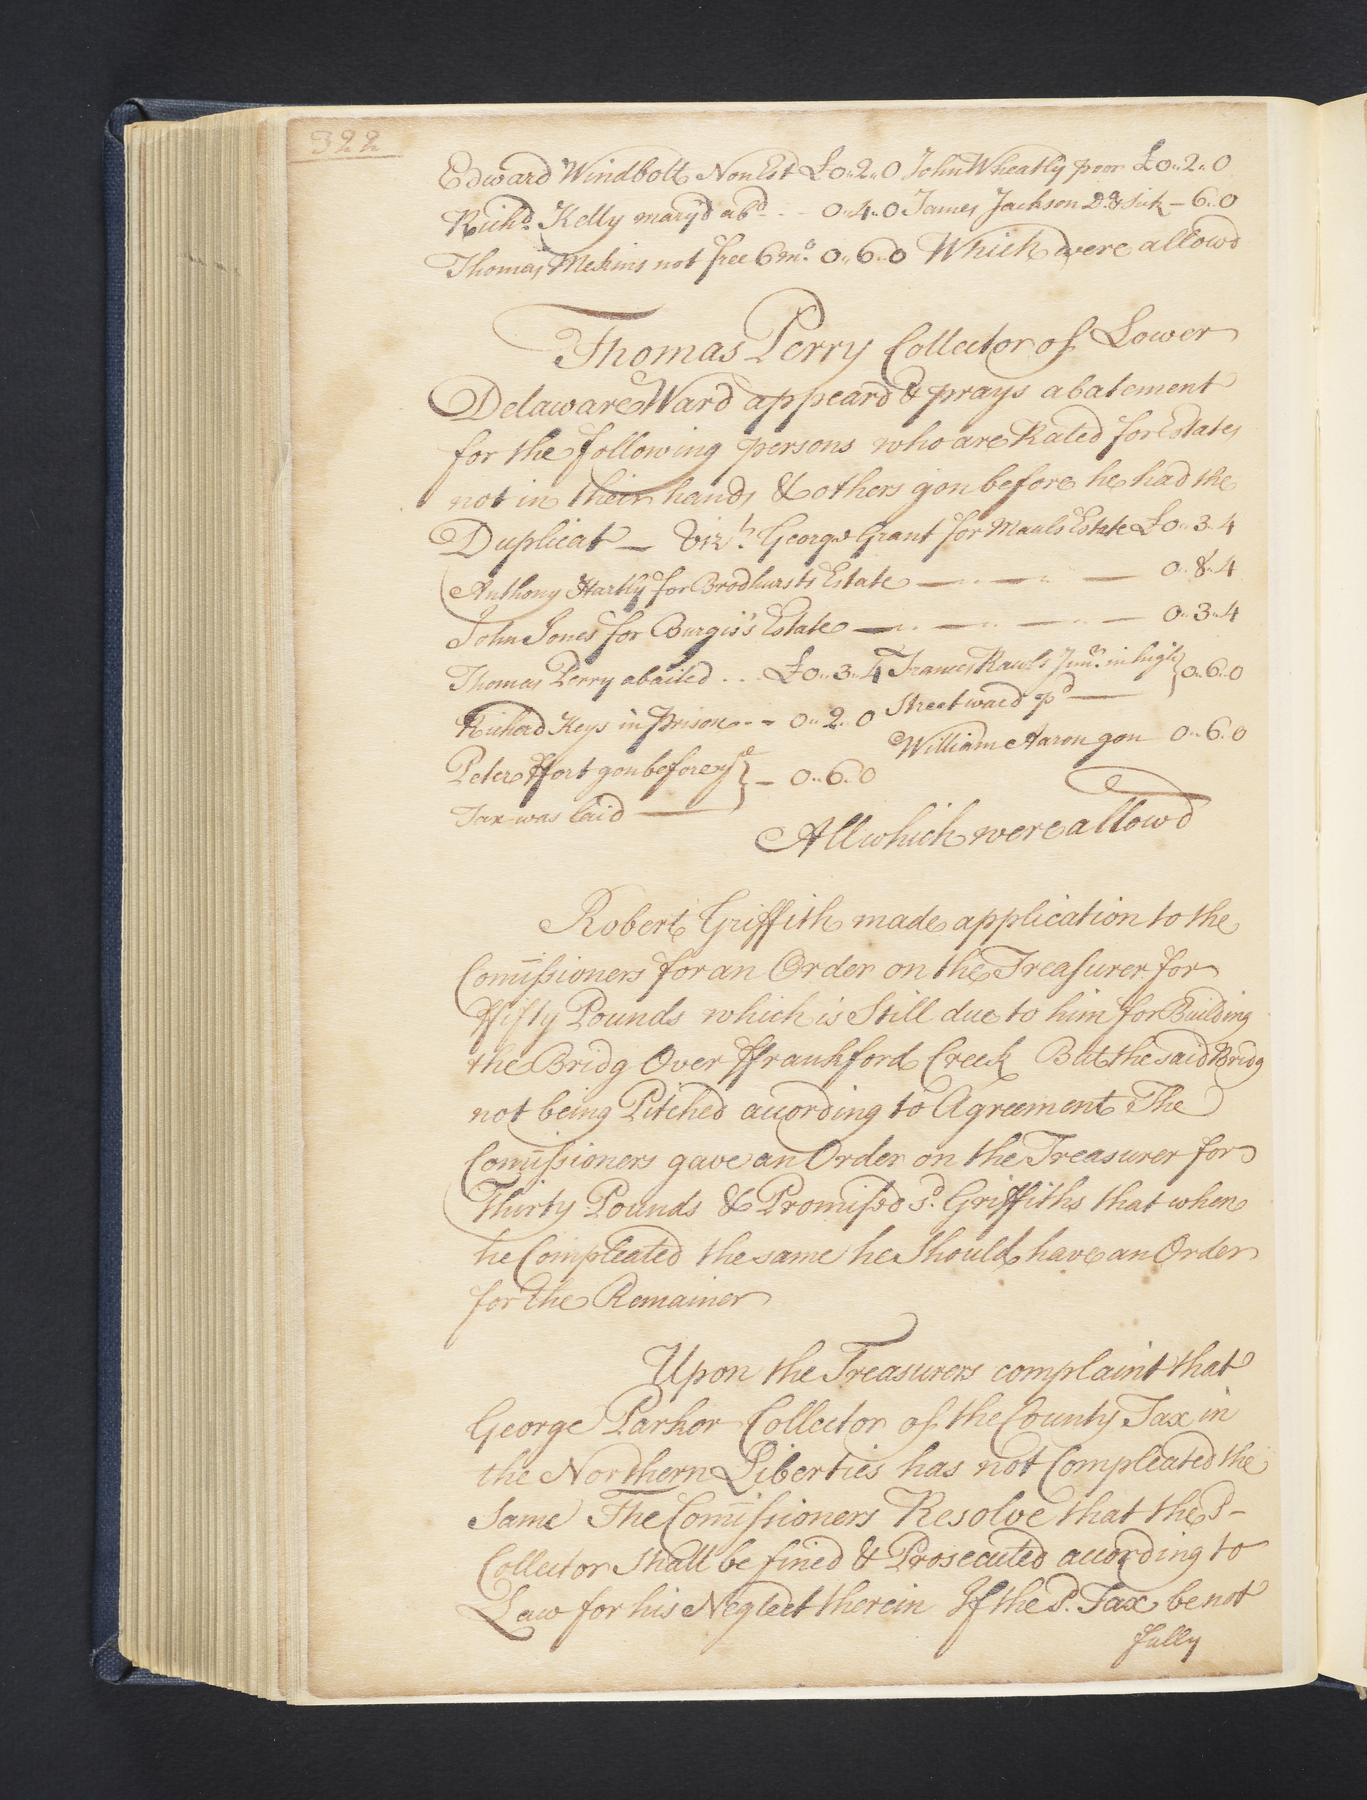 322
Edward Windbolt Non Est £0..2..0 John Wheatly poor £0..2..0
Richd. Kelly maryd abd. - - 0..4..0 James Jackson & Sick - 6..0
Thomas Mekins not free 6 mo. 0..6..0 Which were allowd
Thomas Perry Collector of Lower
Delaware Ward appeard & prays abatement
for the following persons who are Rated for Estates
not in their hands & others gon before he had the
Duplicat — Vizt. George Grant for Mauls Estate £0..3..4
Anthony Hartly for Brodhursts Estate — — — 0..8..4
John Jones for Burgis's Estate — — — — 0..3..4
Thomas Perry abaited . . . £0..3..4 Frances Rawls Junr. in high } 0..6..0
Richard Keys in Prison . . - 0..2..0 Street ward pd —
William Aaron gon 0..6..0
Peter ffort gon before ye } - 0..6..0
Tax was laid —
All which were allowd
Robert Griffith made application to the
Com̄issioners for an Order on the Treasurer for
ffifty Pounds which is Still due to him for Building
the Bridg Over ffrankford Creek But the said Bridg
not being Pitched according to Agreement The
Com̄issioners gave an Order on the Treasurer for
Thirty Pounds & Promissed sd. Griffiths that when
he Compleated the same he Should have an Order
for the Remainer
Upon the Treasurers complaint that
George Parker Collector of the County Tax in
the Northern Liberties has not Compleated the
Same The Com̄issioners Resolve that the S-
Collector shall be fined & Prosecuted according to
Law for his Neglect therein If the S. Tax be not
fully